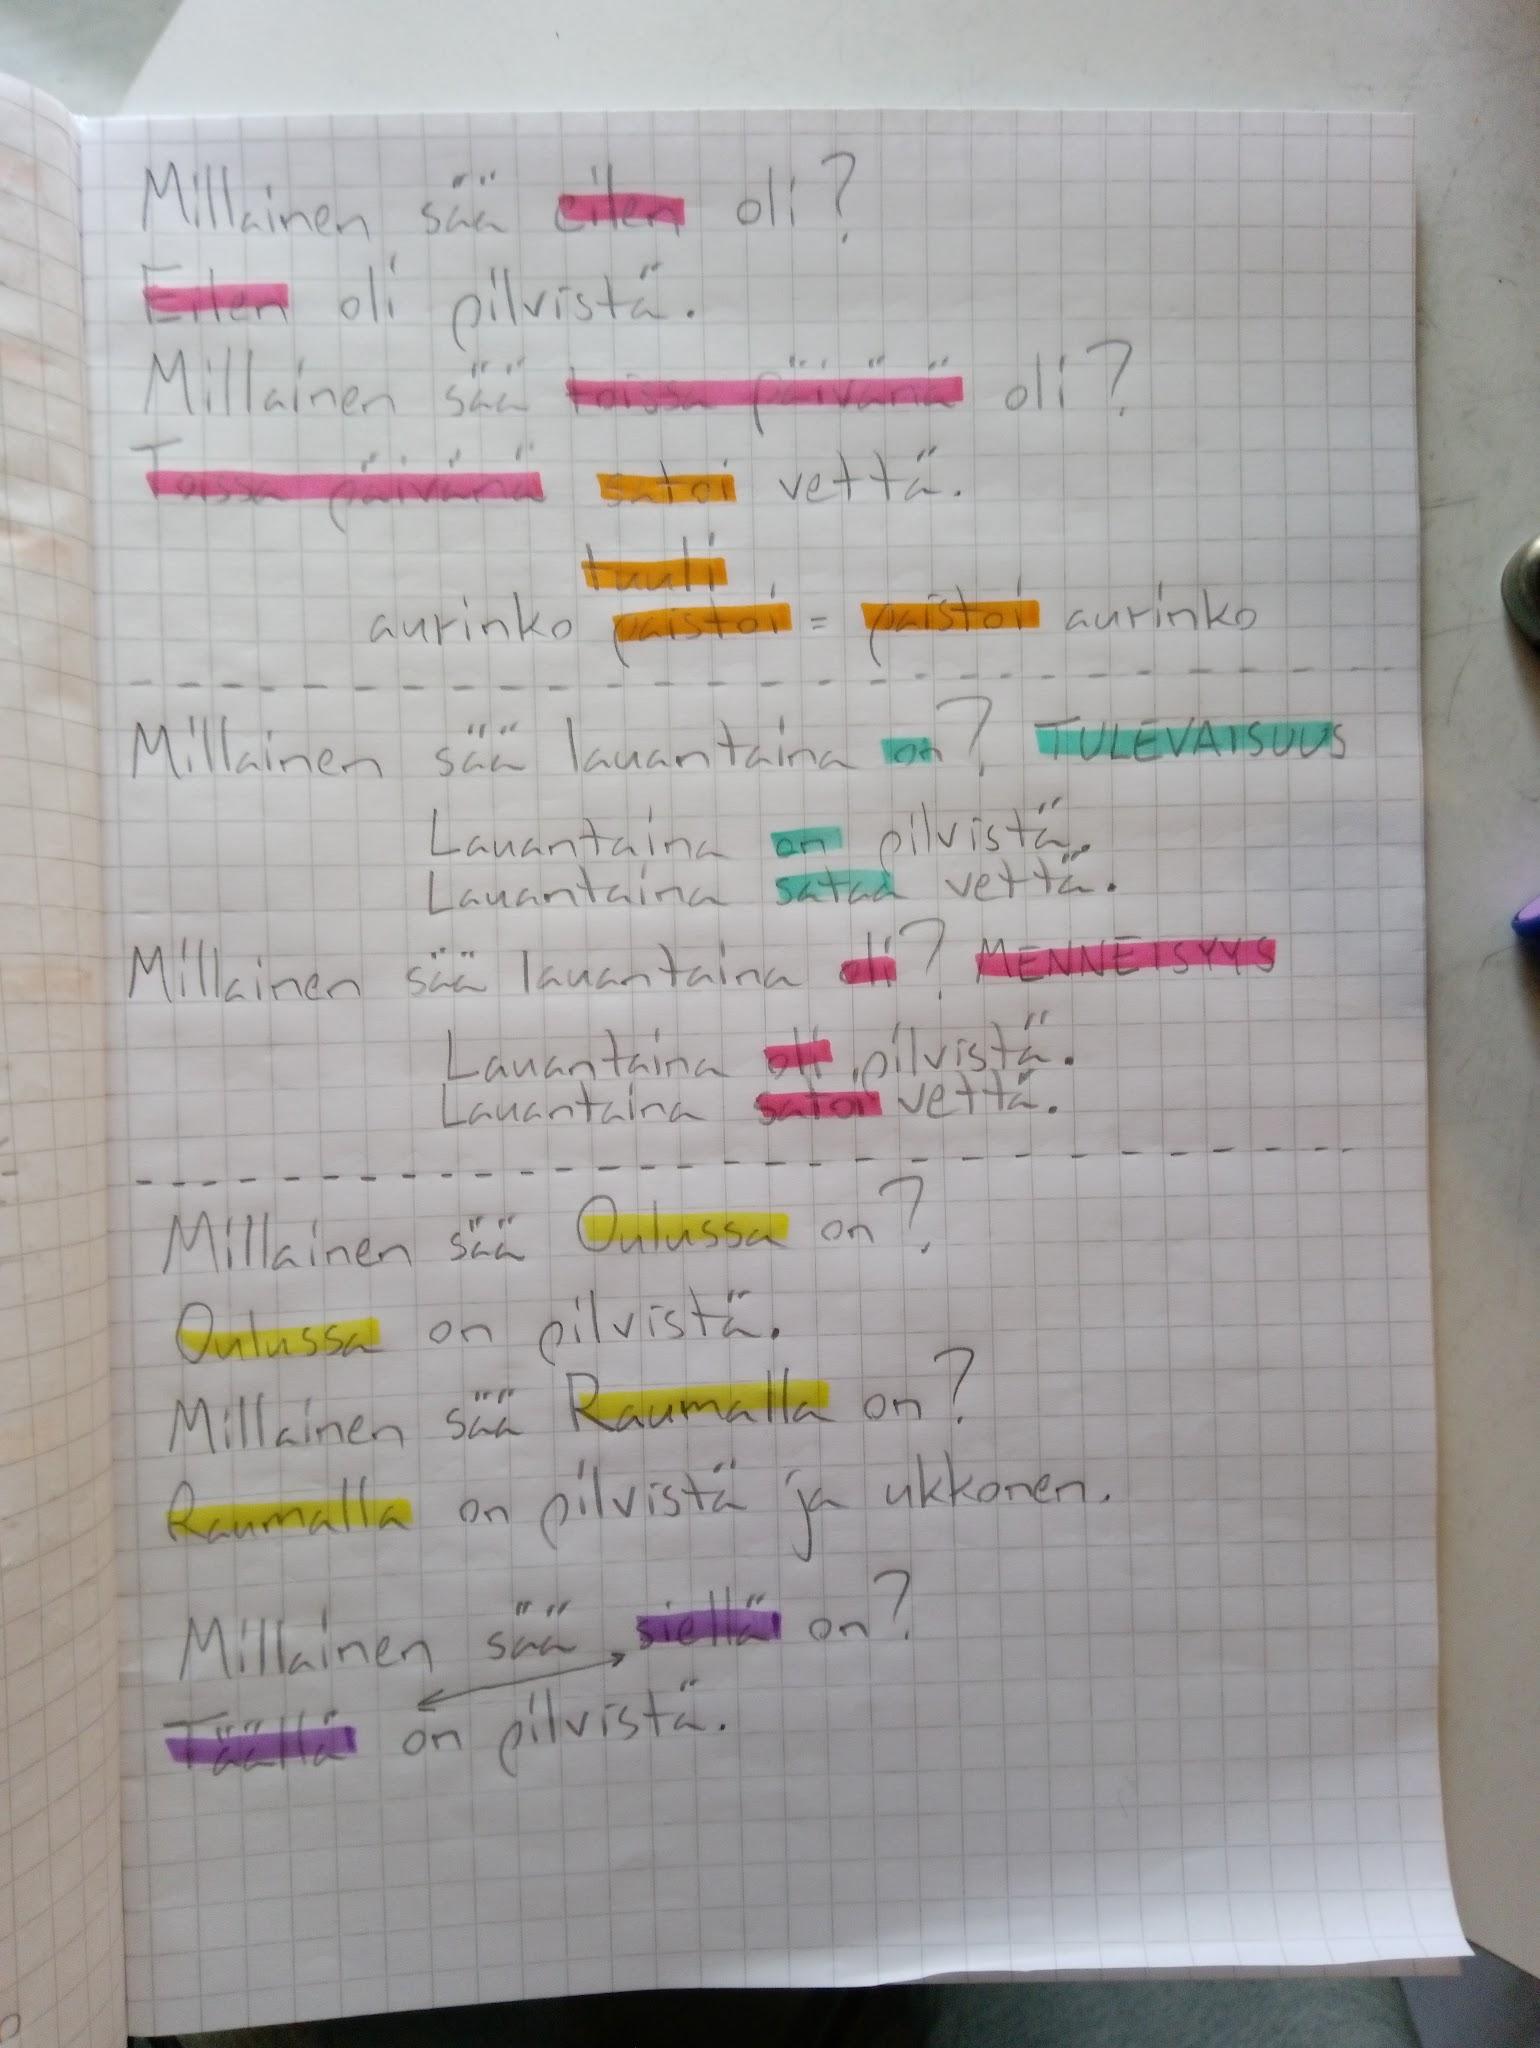 Millainen sää eilen oli?
Eilen oli pilvistä.
Millainen sää toissa päivänä oli?
Toissa päivänä satoi vettä.
tuuli
aurinko paistoi = paistoi aurinko
Millainen sää lauantaina on? TULEVAISUUS
Lauantaina on pilvistä.
Lauantaina sataa vettä.
Millainen sää lauantaina oli? MENNEISYYS
Lauantaina oli pilvistä.
Lauantaina satoi vettä.
Millainen sää Oulussa on?
Oulussa on pilvistä.
Millainen sää Raumalla on?
Raumalla on pilvistä ja ukkonen.
Millainen sää siellä on?
Täällä on pilvistä.